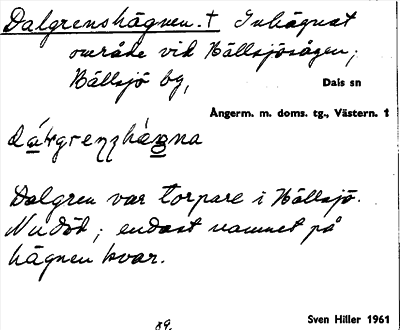 Dalgrenshägnen. † Inhägnat
område vid Hällsjösågen;
Hällsjö by,
Dals sn
Ångerm. m. doms. tg., Västern. 1
Dalgren var torpare i Hällsjö.
Nu död; endast namnet på
hägnen kvar.
89.
Sven Hiller 1961